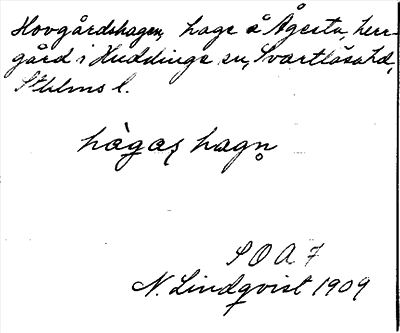 Hovgårdshagen, hage å Ågesta, herr-
gård i Huddinge sn, Svartlösa hd,
Sthlms l.
hȧgaș hagn̥
S O A 7
N. Lindqvist 1909